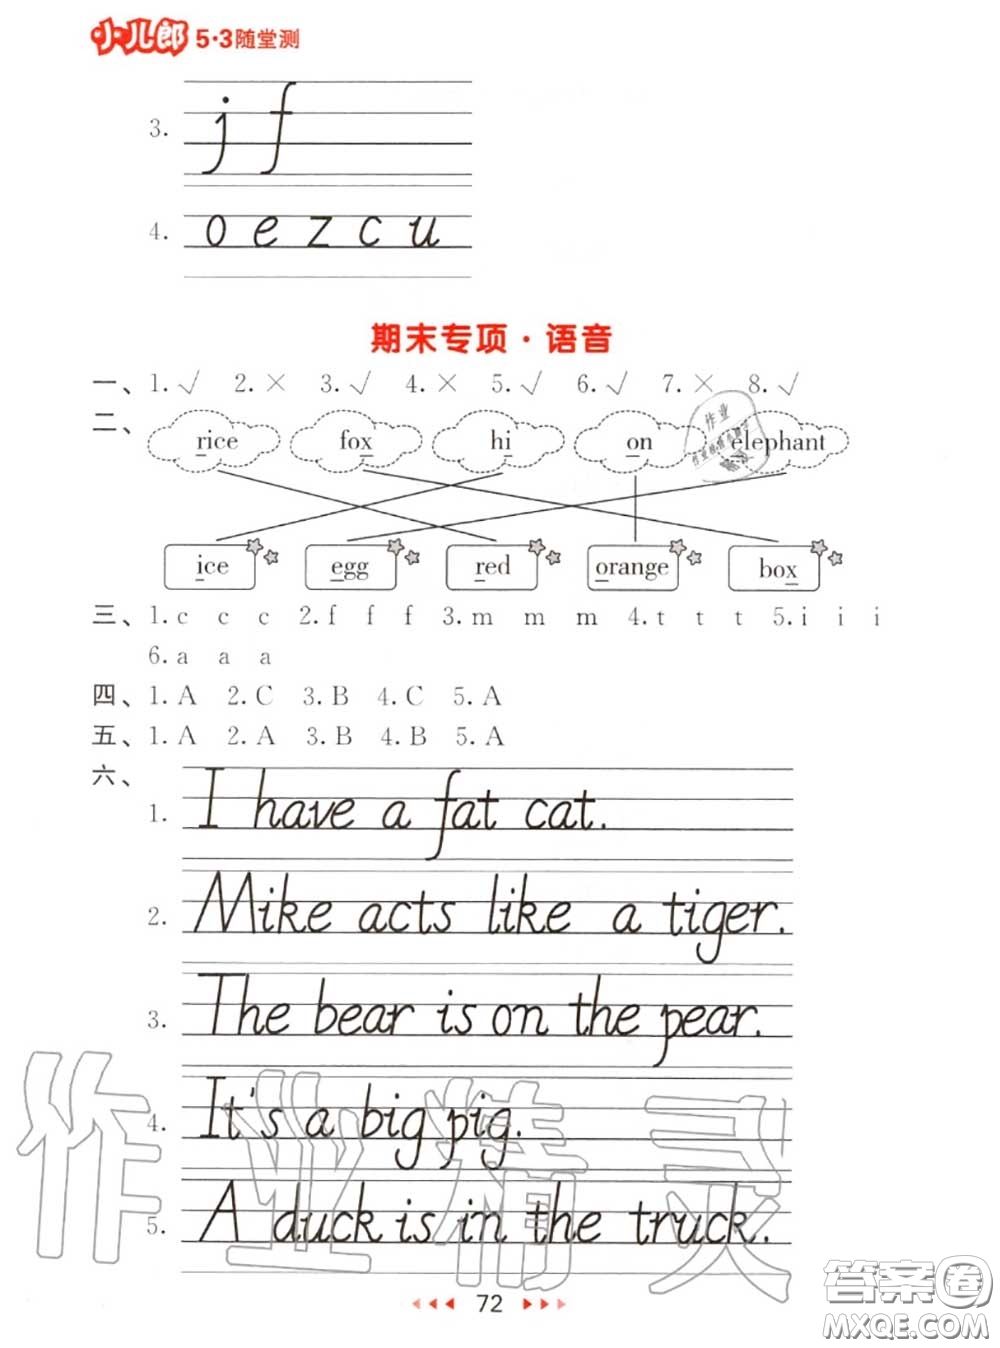 小儿郎 5·3随堂测
3. j f
4. o e z c u
期末专项·语音
一、1. √ 2. × 3. √ 4. × 5. √ 6. √ 7. × 8. √
二、 rice fox hi on elephant
ice egg red orange box
三、1. c c c 2. f f f 3. m m m 4. t t t 5. i i i
6. a a a
四、1. A 2. C 3. B 4. C 5. A
五、1. A 2. A 3. B 4. B 5. A
六、
1. I have a fat cat.
2. Mike acts like a tiger.
3. The bear is on the pear.
4. It's a big pig.
5. A duck is in the truck.
作业精灵
72
答案圈
MXQE.COM